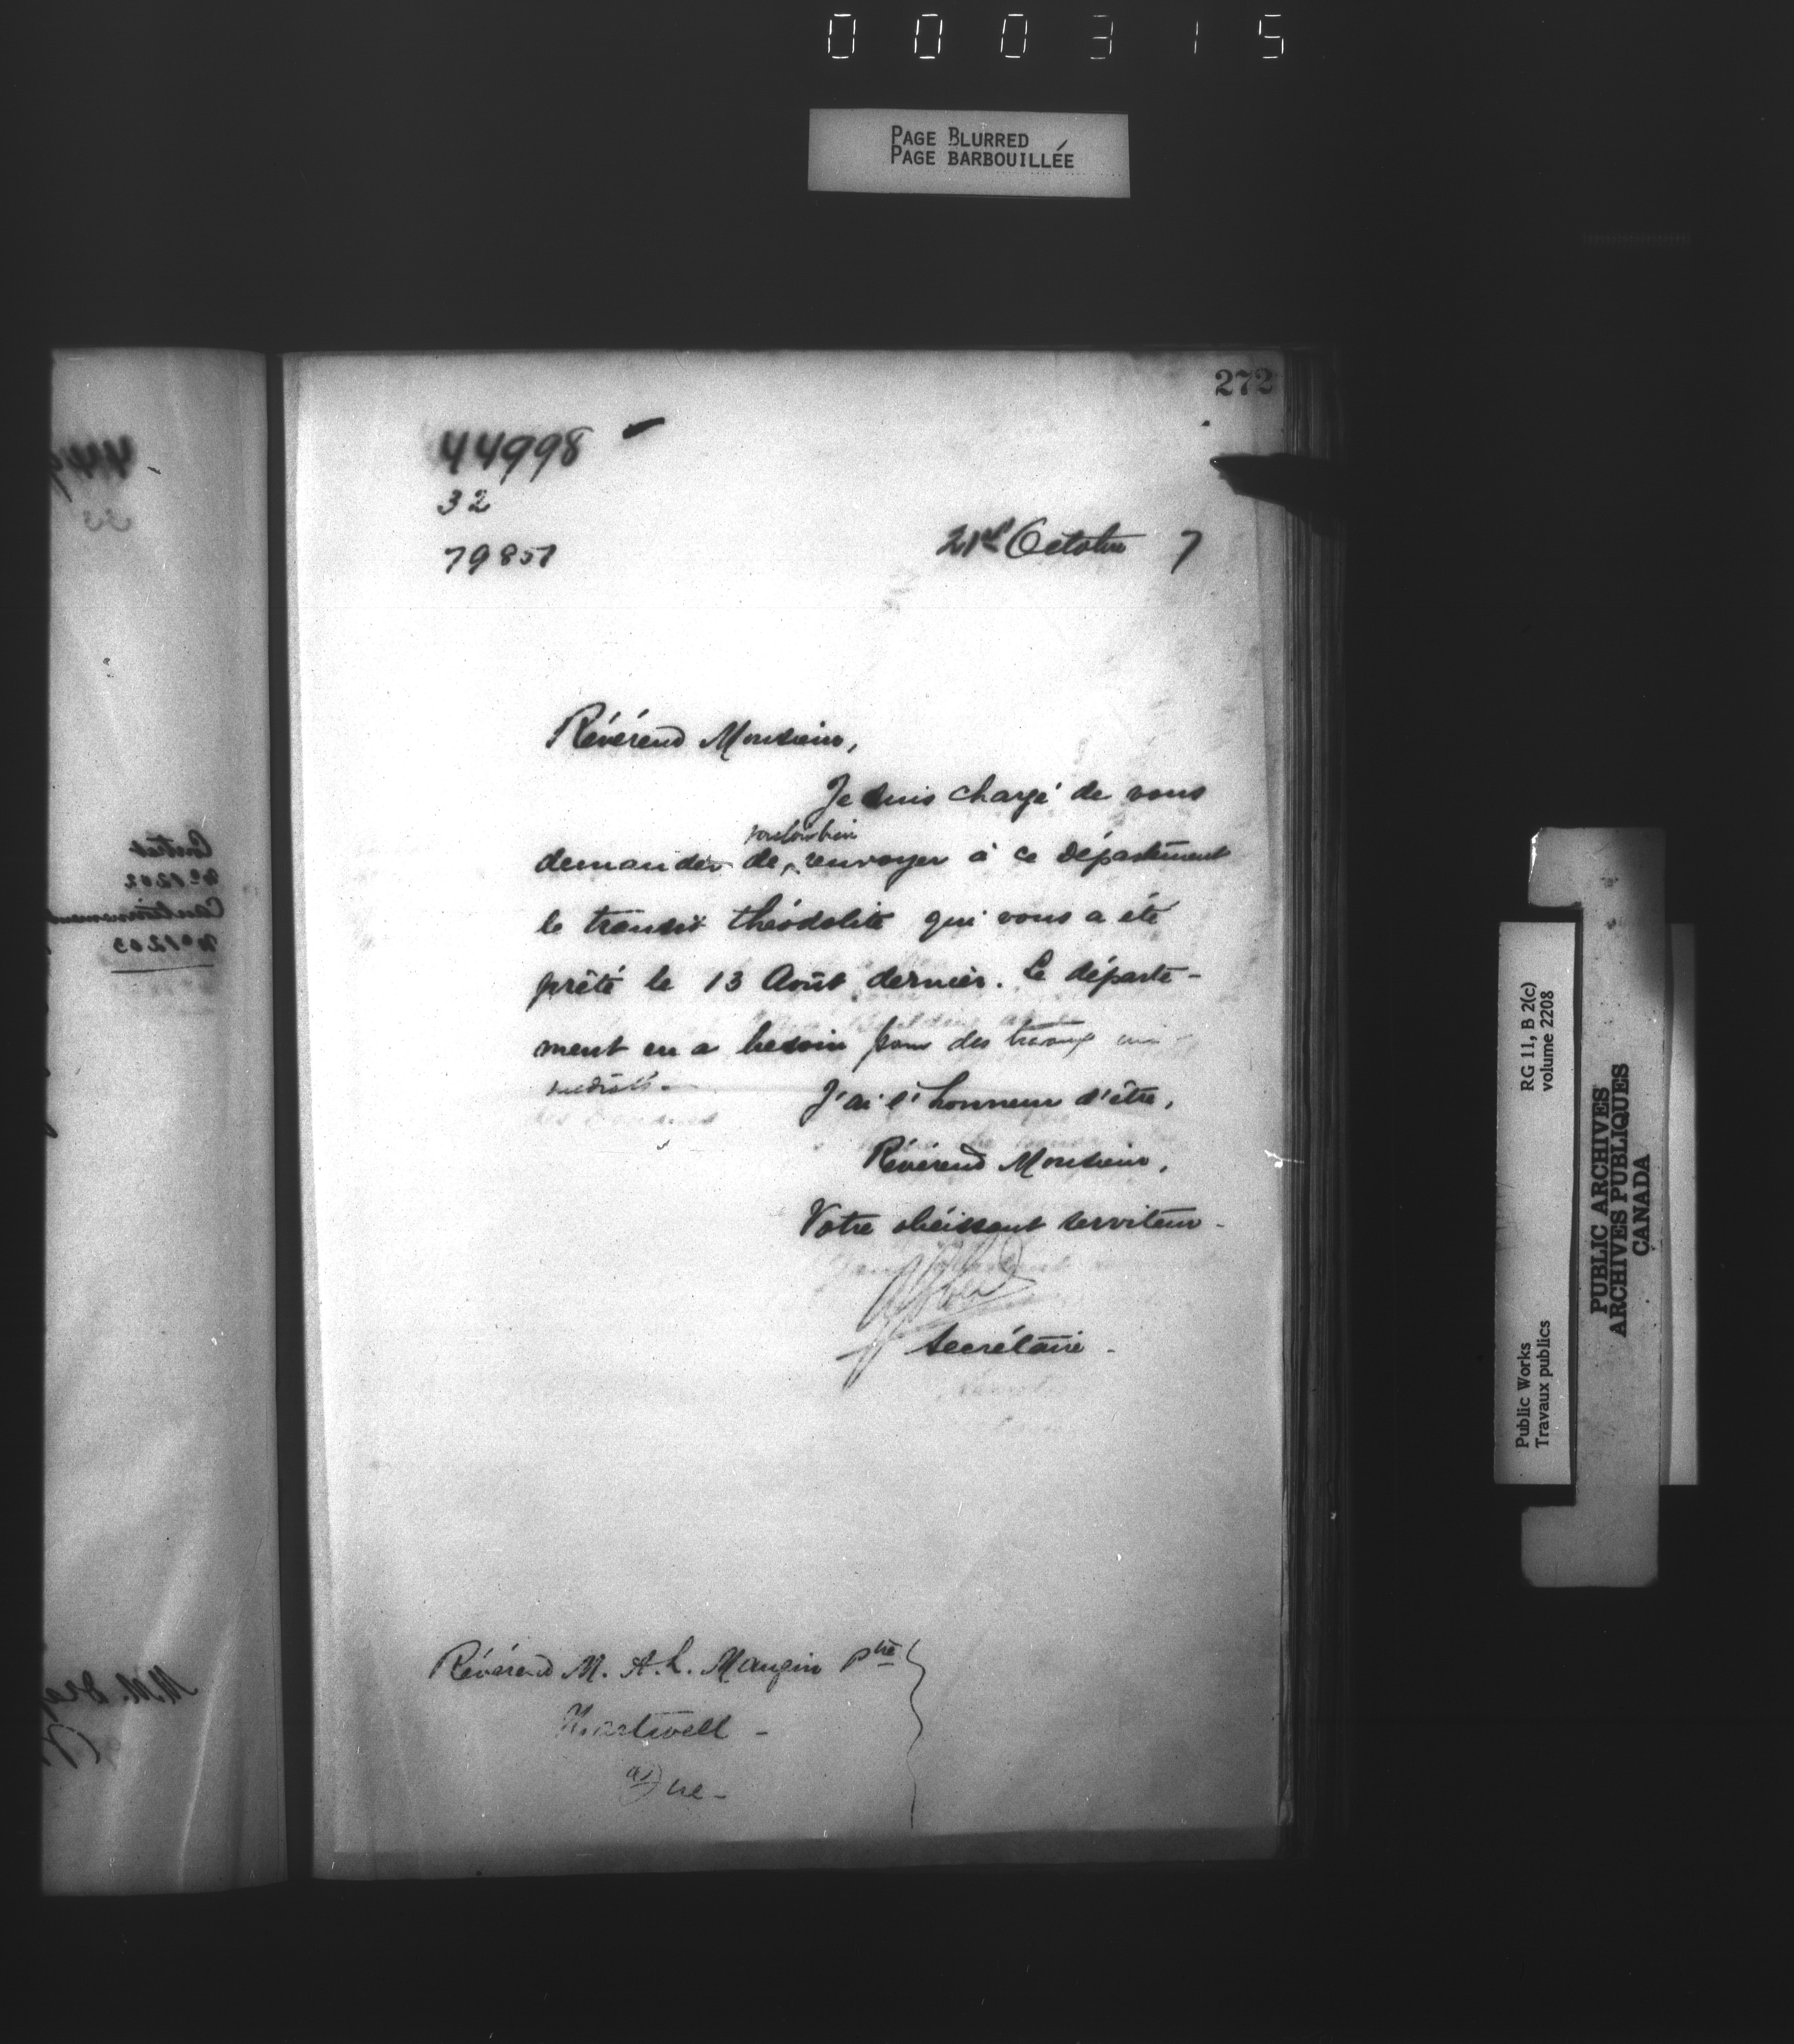 000315
PAGE BLURRED
PAGE BARBOUILLÉE
272
44998
32
79857
21 Octobre 7
Révérend Monsieur,
Je suis chargé de vous
vouloir bien
demander de renvoyer à ce Département
le transit théodolite qui vous a été
prêté le 13 Août dernier. Le départe-
ment en a besoin pour des travaux im-
médiats.
J'ai l'honneur d'être,
Révérend Monsieur,
Votre obéissant serviteur -
Secrétaire -
Révérend M. A. L. Mangin Ptre
Hartwell -
Que -
Contrat
No 1202
Cautionnement
No 1203
RG 11, B 2(c)
volume 2208
Public Works
Travaux publics
PUBLIC ARCHIVES
ARCHIVES PUBLIQUES
CANADA